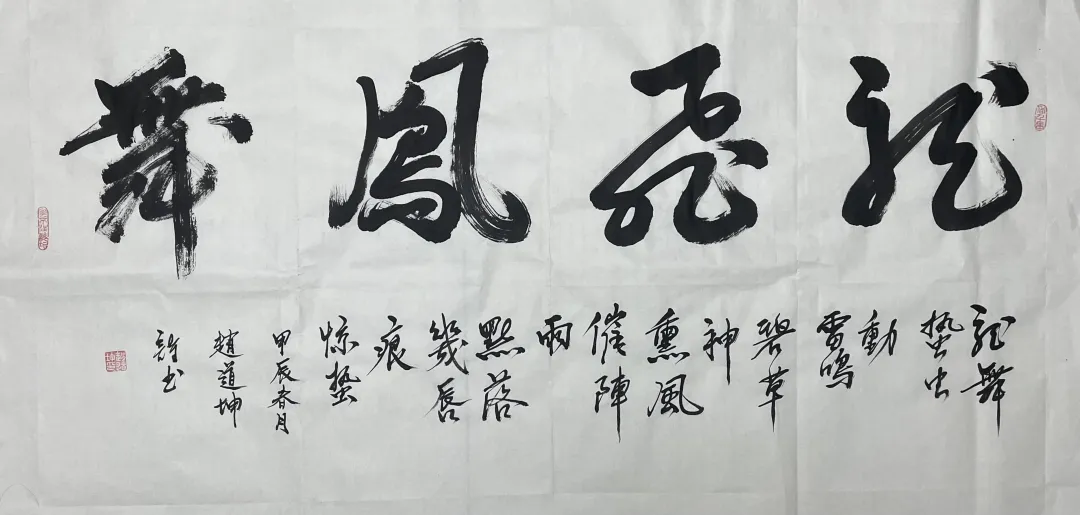 龍飛鳳舞
龍舞
蛰虫
動
雷鳴
碧草
神
熏風
催陣
雨
點落
幾唇
痕
惊蛰
甲辰春月
趙道坤
詩书